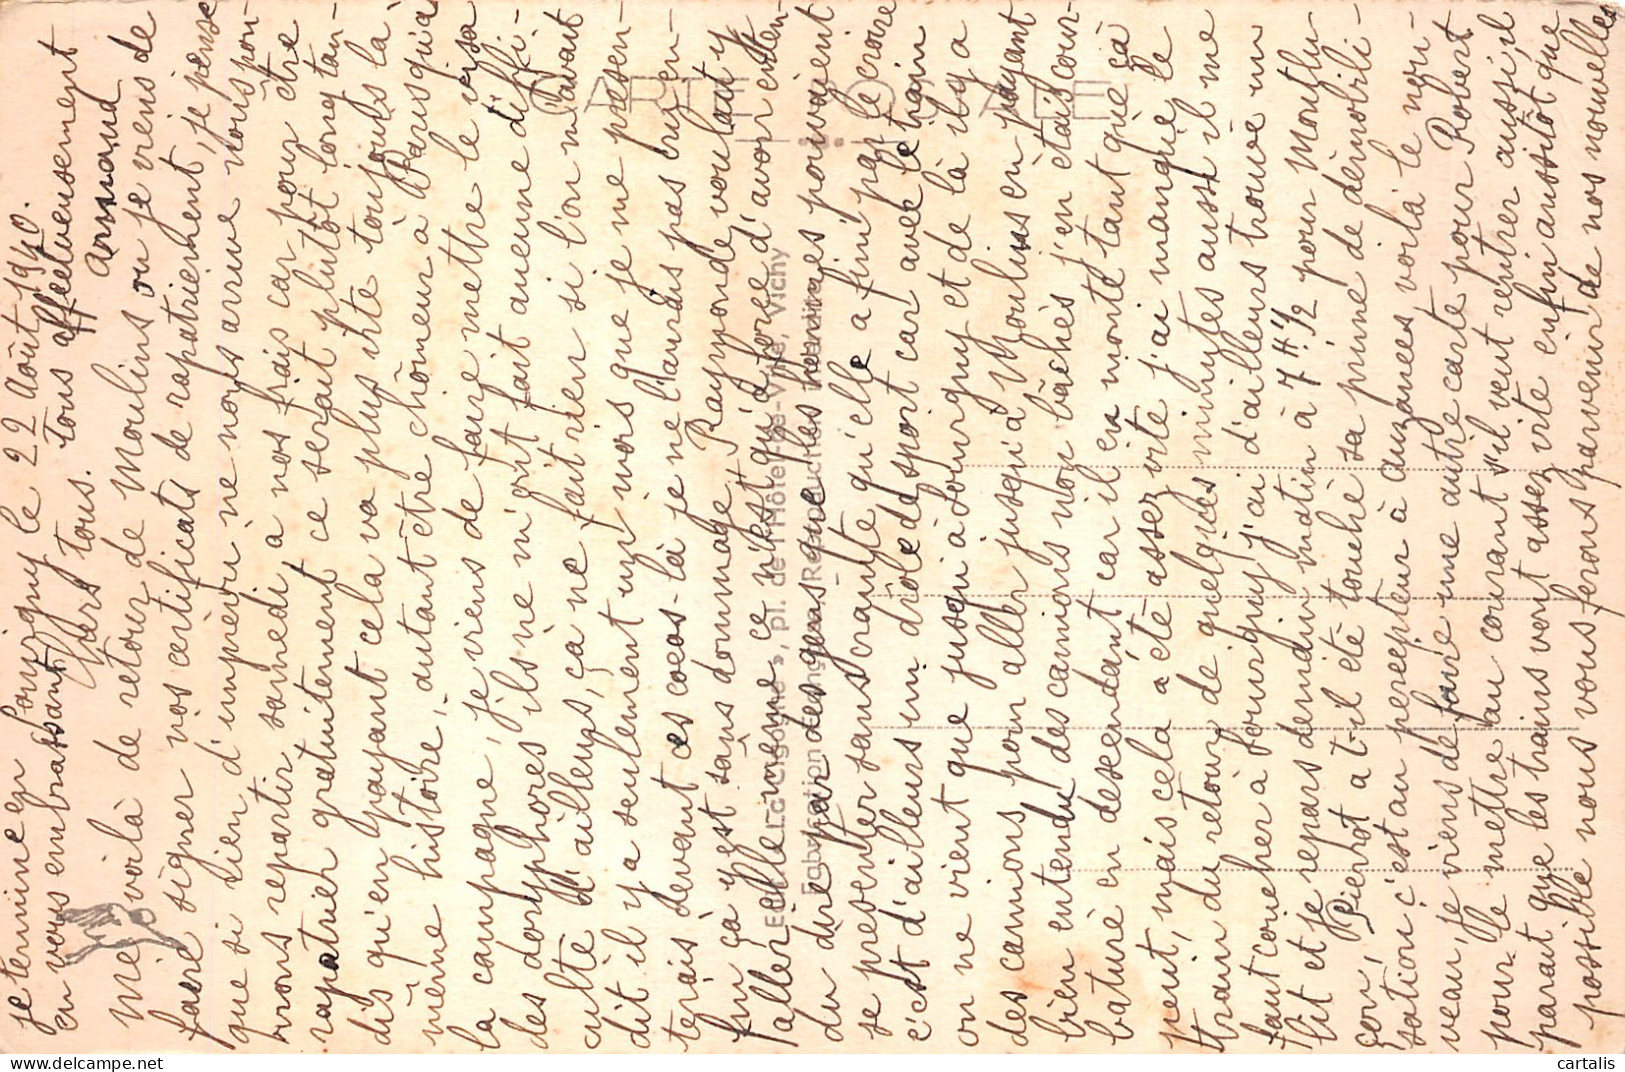 Jouigny le 22 Août 1940.
Chers tous.
Me voilà de retour de Moulins où je viens de
faire signer vos certificats de rapatriement, je pense
que si rien d'imprévu ne nous arrive nous pou-
rrons repartir samedi à nos frais car pour être
rapatrier gratuitement ce serait plutôt long tan-
dis qu'en payant cela va plus vite toujours la
même histoire, autant être chômeur à Paris qu'à
la campagne, je viens de faire mettre le visa
des doryphores ils ne m'ont fait aucune diffi-
culté d'ailleurs, ça ne fait rien si l'on m'avait
dit il y a seulement un mois que je me présen-
terais devant ces cocos-là je ne l'aurais pas cru en-
fin ça y est sans dommage, Raymonde voulait y
aller elle même, ce n'est qu'à force d'avoir enten-
du dire par des gens que les femmes pouvaient
se presenter sans crainte qu'elle a fini par le croire
c'est d'ailleurs un drôle de sport car avec le train
on ne vient que jusqu'à Souvigny et de là il y a
des camions pour aller jusqu'à Moulins en payant
bien entendu des camions non bâchés j'en étais cour-
baturé en descendant car il en monte tant que ça
peut, mais cela a été assez vite j'ai manqué le
train du retour de quelques minutes aussi il me
faut coucher à Souvigny j'ai d'ailleurs trouvé un
lit et je repars demain matin à 7 H 1/2 pour Montlu-
çon, Pierrot a t-il été touché sa prime de démobili-
sation c'est au percepteur à Auzances voilà le nou-
veau, je viens de faire une autre carte pour Robert
pour le mettre au courant s'il veut rentrer aussi, il
parait que les trains vont assez vite enfin aussitôt que
possible nous vous ferons parvenir de nos nouvelles
je termine en
en vous embrassant tous affectueusement
Armand
ARTI
Edit. « La Cigogne », pl. de l'Hôtel-de-Ville, Vichy
Fabrication Française - Reproduction interdite
cartalis